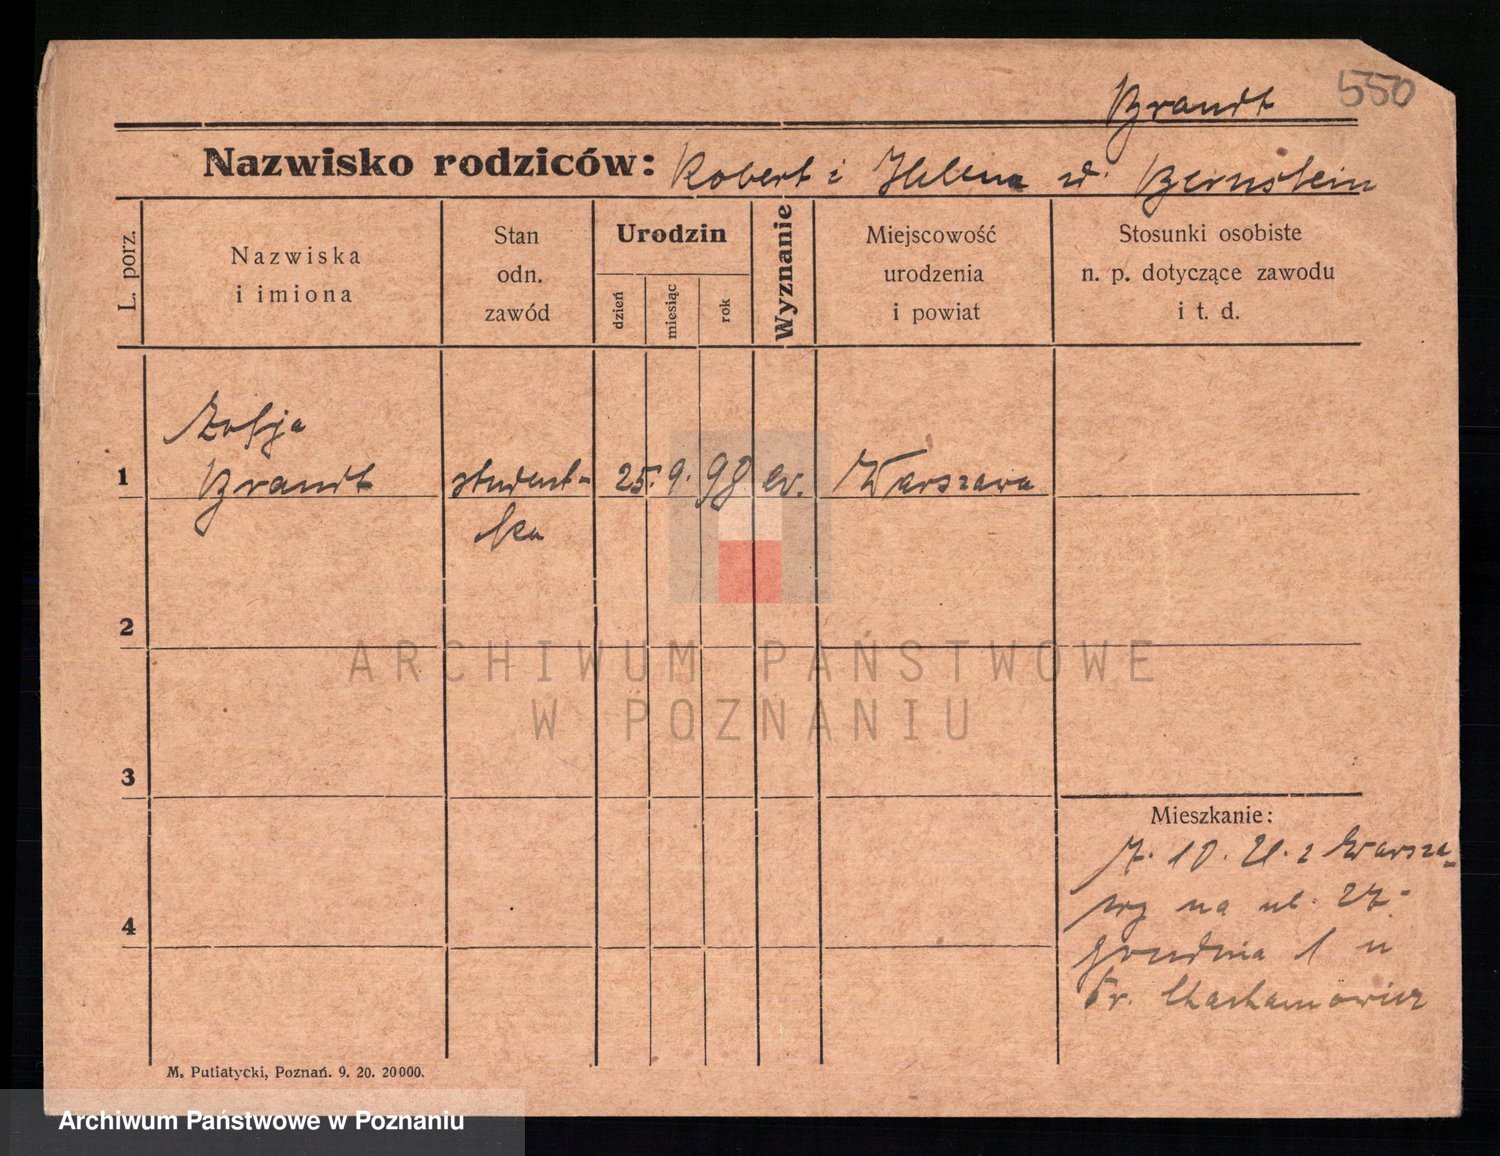 Brandt 550
Nazwisko rodziców: Robert i Helena d. Bernstein
L. porz.
Nazwiska
i imiona
Stan
odn.
zawód
Urodzin
dzień
miesiąc
rok
Wyznanie
Miejscowość
urodzenia
i powiat
Stosunki osobiste
n. p. dotyczące zawodu
i t. d.
Zofja
1 Brandt student- 25. 9. 98 ev. Warszawa
ka
2
ARCHIWUM PAŃSTWOWE
W POZNANIU
3
Mieszkanie:
7. 10. 21. z Warsza-
wy na ul. 27
4
grudnia 1 u
M. Putiatycki, Poznań. 9. 20. 20000.
Archiwum Państwowe w Poznaniu